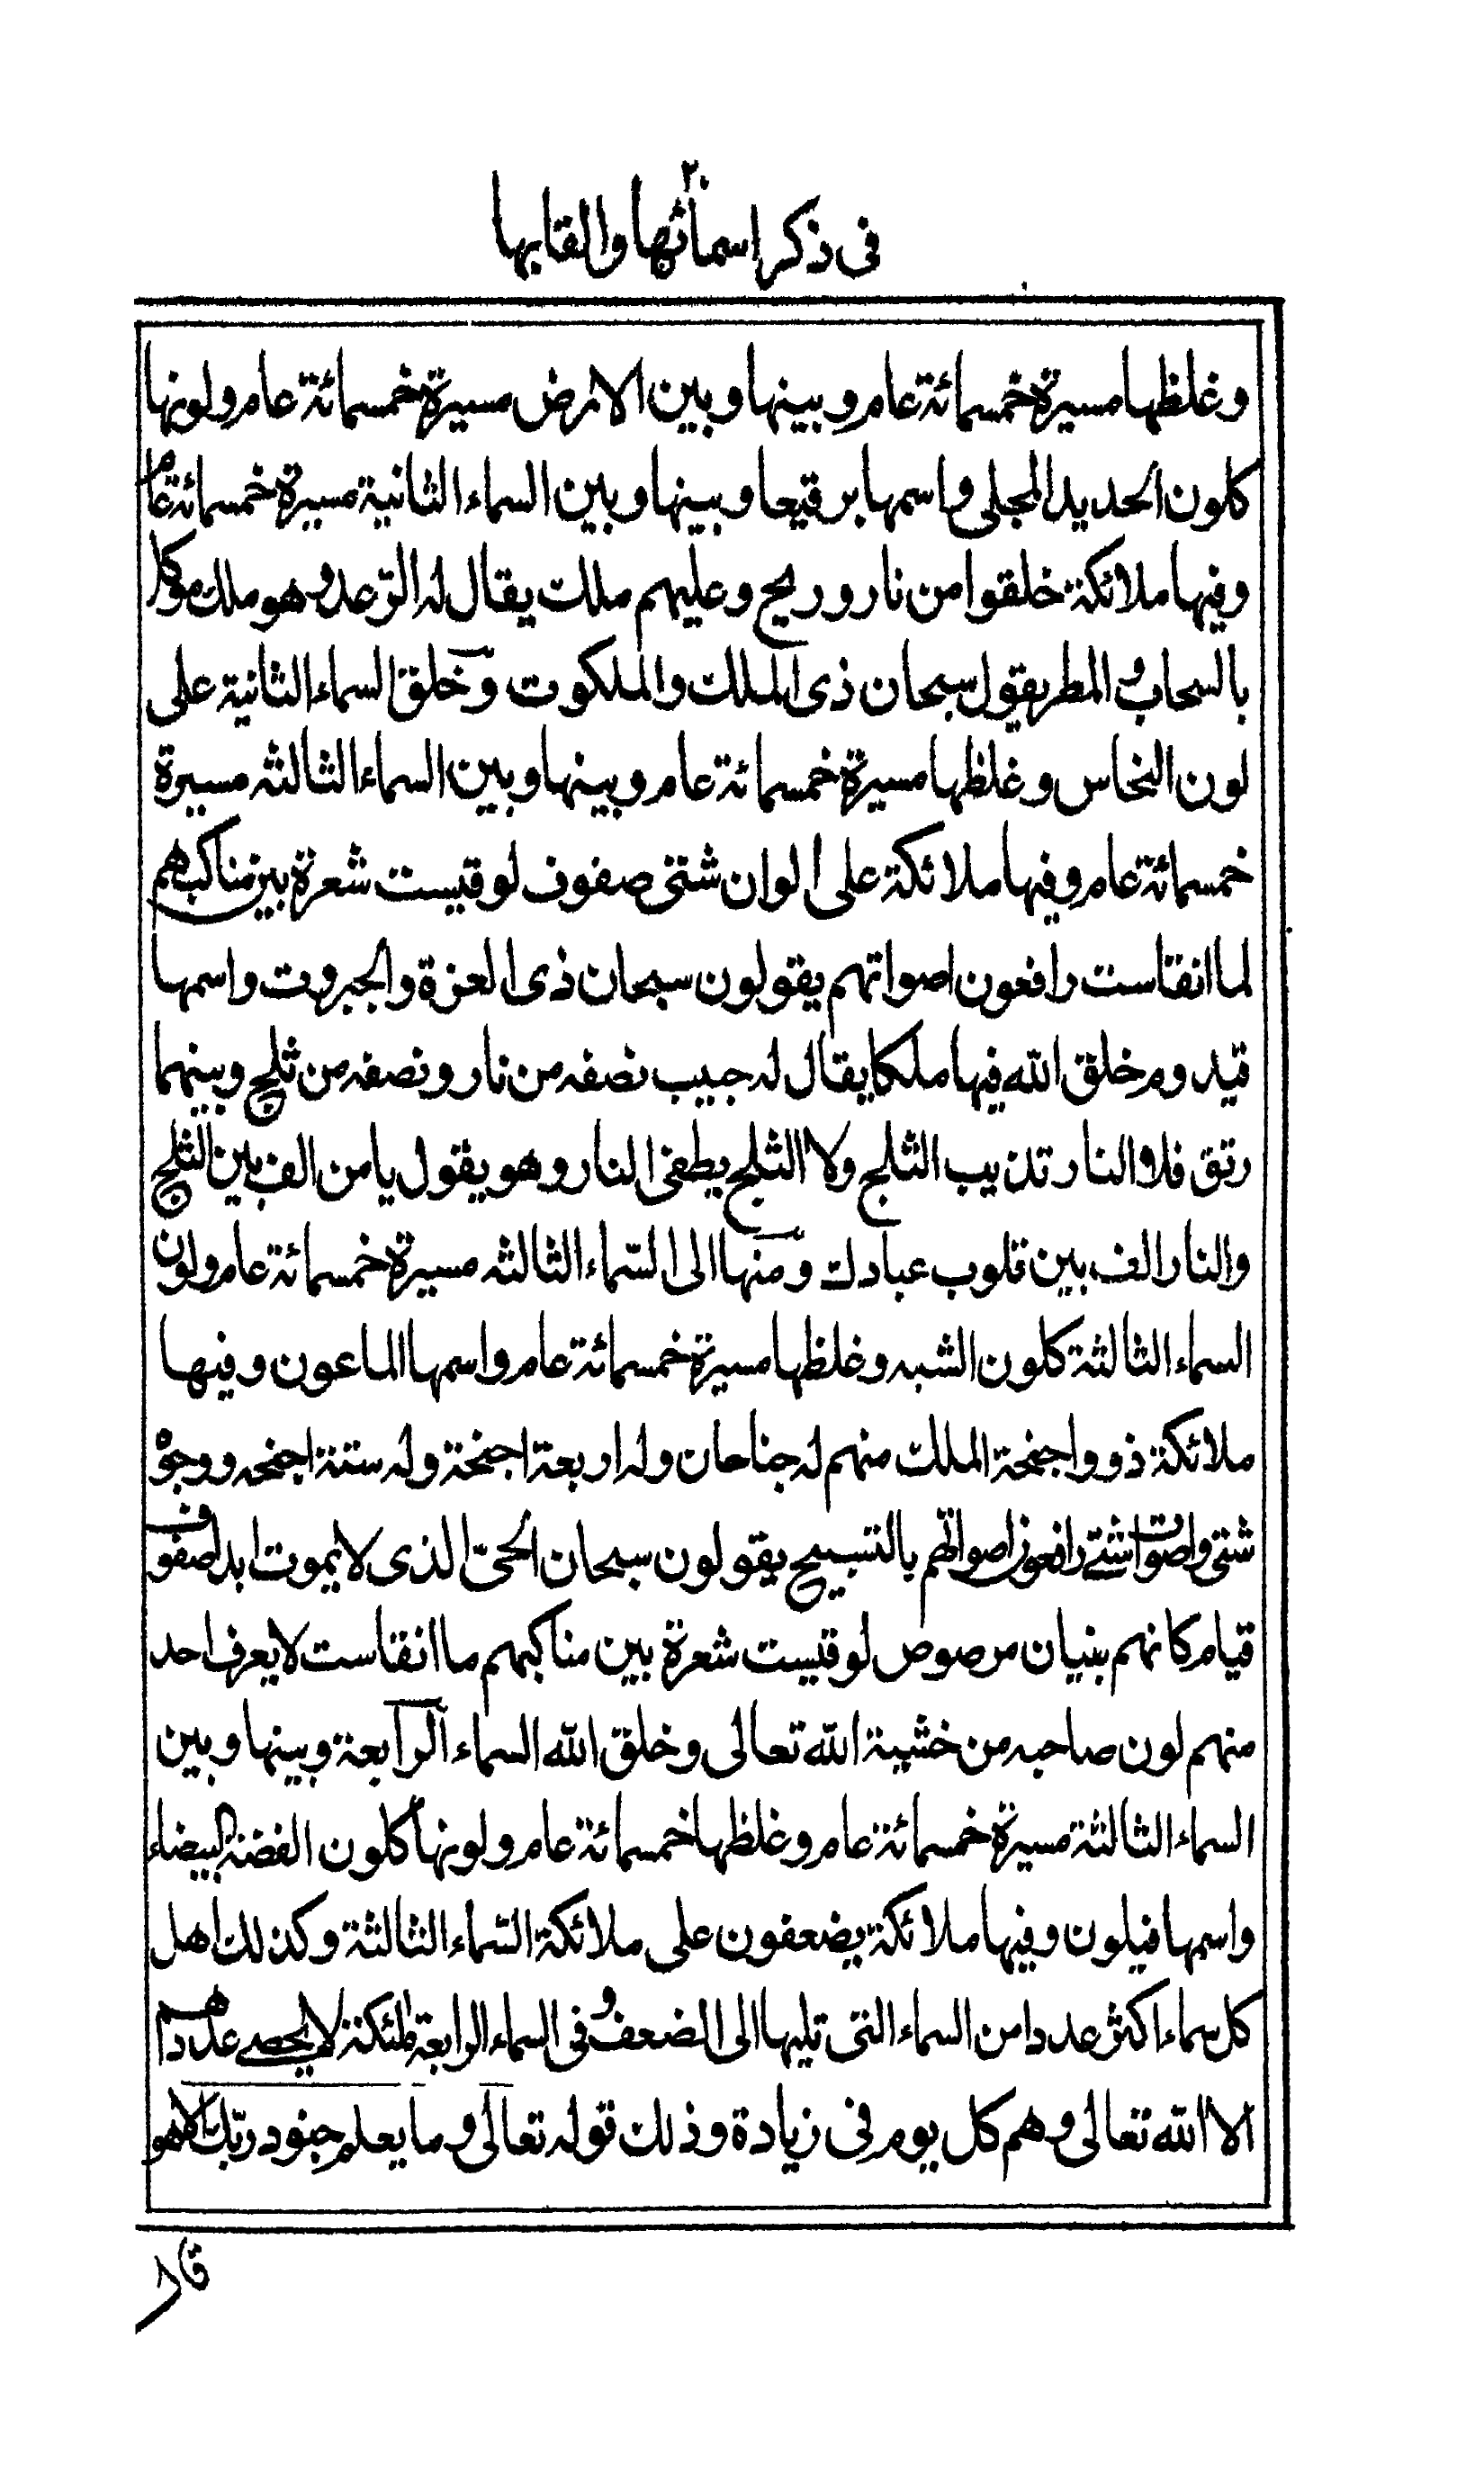 ٢٠
فى ذكر اسمائها والقابها
وغلظها مسيرة خمسمائة عام وبينها وبين الارض مسيرة خمسمائة عام ولونها
كلون الحديد المجلى واسمها برقيعا وبينها وبين السماء الثانية مسيرة خمسمائة عام
وفيها ملائكة خلقوا من نار وريح وعليهم ملك يقال له الرّعد وهو ملك موكل
بالسحاب والمطر يقول سبحان ذى الملك والملكوت وخلق السماء الثانية على
لون النحاس وغلظها مسيرة خمسمائة عام وبينها وبين السماء الثالثه مسيرة
خمسمائة عام وفيها ملائكة على الوان شتى صفوف لو قيست شعرة بين مناكبهم
لما انقاست رافعون اصواتهم يقولون سبحان ذى العزة والجبروت واسمها
قيدوم خلق الله فيها ملكا يقال له حبيب نصفه من نار ونصفه من ثلج وبينهما
رتق فلا النار تذيب الثلج ولا الثلج يطفى النار وهو يقول يا من الف بين الثلج
والنار الف بين قلوب عبادك ومنها الى السّماء الثالثه مسيرة خمسمائة عام ولون
السماء الثالثة كلون الشبه وغلظها مسيرة خمسمائة عام واسمها الماعون وفيها
ملائكة ذوو اجنحة الملك منهم له جناحان وله اربعة اجنحة وله ستة اجنحه ووجوه
شتى واصوات شتى رافعون اصواتهم بالتسبيح يقولون سبحان الحىّ الذى لا يموت ابدا صفوف
قيام كانهم بنيان مرصوص لو قيست شعرة بين مناكبهم ما انقاست لا يعرف احد
منهم لون صاحبه من خشية الله تعالى وخلق الله السماء الرابعة وبينها وبين
السماء الثالثة مسيرة خمسمائة عام وغلظها خمسمائة عام ولونها كلون الفضة البيضاء
واسمها فيلون وفيها ملائكة يضعفون على ملائكة السّماء الثالثة وكذلك اهل
كل سماء اكثر عددا من السماء التى تليها الى الضعف وفى السماء الرابعة ملئكة لا يحصى عددهم
الا الله تعالى وهم كل يوم فى زيادة وذلك قوله تعالى وما يعلم جنود ربّك الا هو
قال